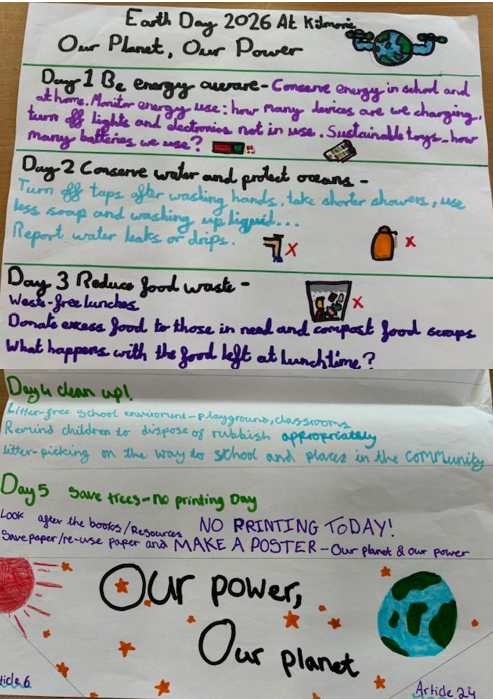 Earth Day 2026 At Kilmorie
Our Planet, Our Power
Day 1 Be energy aware - Conserve energy in school and
at home. Monitor energy use: how many devices are we charging,
turn off lights and electronics not in use. Sustainable toys - how
many batteries we use?
Day 2 Conserve water and protect oceans -
Turn off taps after washing hands, take shorter showers, use
less soap and washing up liquid...
Report water leaks or drips.
Day 3 Reduce food waste -
Waste-free lunches
Donate excess food to those in need and compost food scraps
What happens with the food left at lunchtime?
Day 4 clean up!
Litter-free school enviroment - playground, classrooms
Remind children to dispose of rubbish appropriately
litter-picking on the way to school and places in the community
Day 5 Save trees - no printing Day
Look after the books/Resources NO PRINTING TODAY!
Save paper/re-use paper and MAKE A POSTER - Our planet & our power
Our power,
Our planet
ticle 6
Article 24